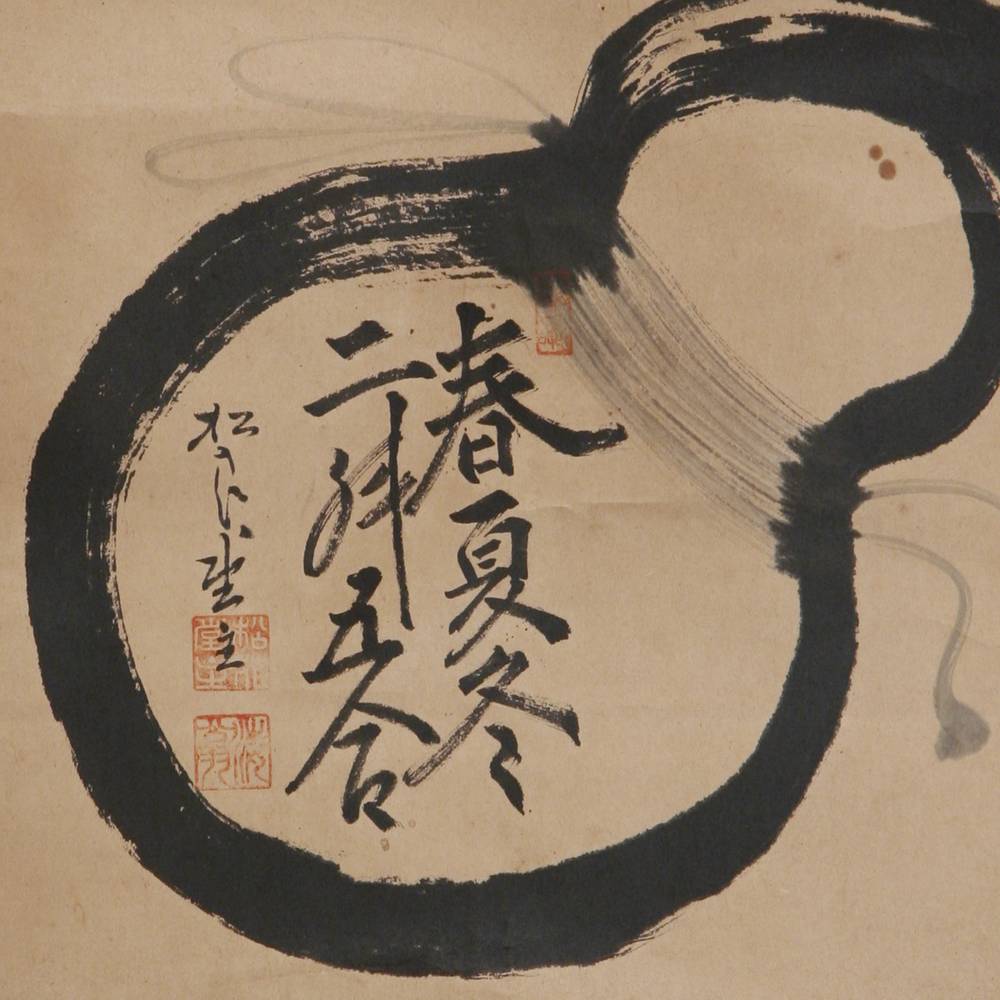 春夏冬
二升五合
松堂主